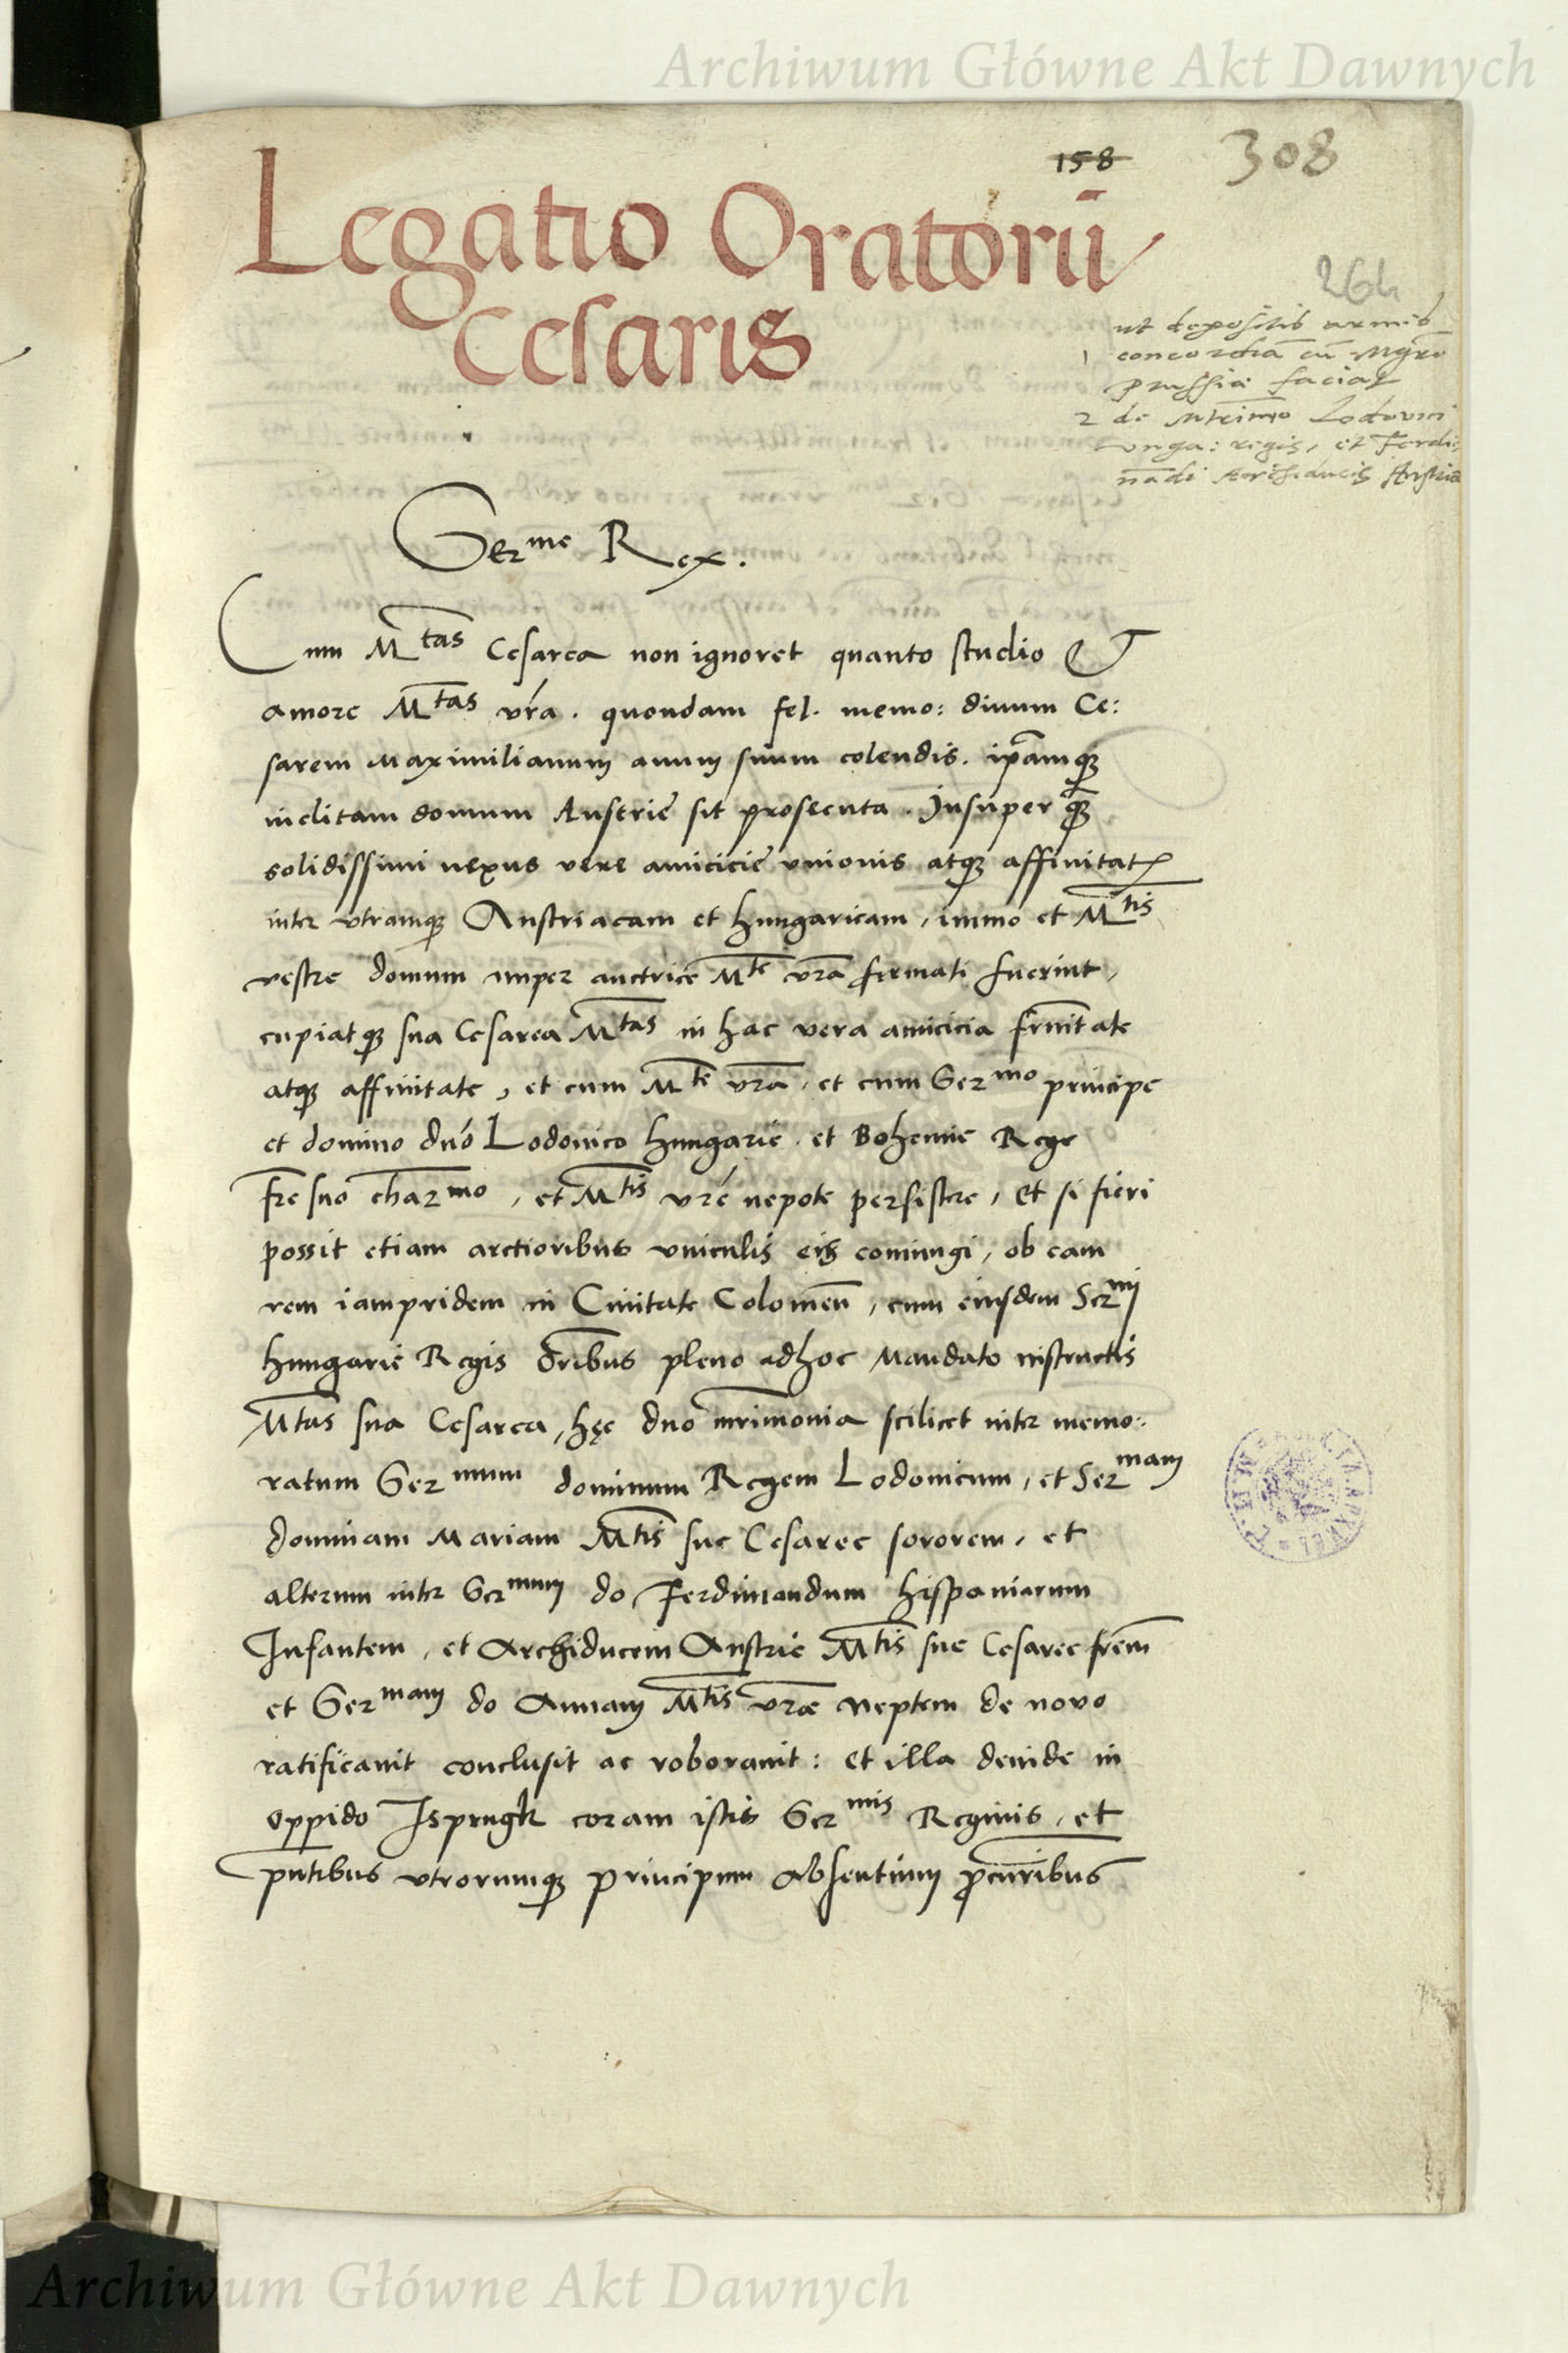 Archiwum Główne Akt Dawnych
158
308
Legatio Oratorū
Cesaris
264
ut depositis armis
1 concordiā cū Mgrō
prussiæ faciat
2 de Mtrimo Lodovici
vnga: regis, et Ferdi
nādi Archiducis Austriæ
Serme Rex.
Cum Mtas Cesarea non ignoret quanto studio &
amore Mtas vra. quondam fel. memo: diuum Ce:
sarem Maximilianum auum suum colendis. ipamq
inclitam domum Austrie sit prosecuta. Insuper q
solidissimi nexus vere amicicie vnionis atq affinitat
inter vtramq Austriacam et hungaricam, immo et Mtis
vestre domum nuper auctrice Mte vra firmati fuerint,
cupiatq sua Cesarea Mtas in hac vera amicicia frnitate
atq affinitate, et cum Mte vra, et cum Sermo principe
et domino dno Lodouico hungarie, et Bohemie Rege
fre suo charmo, et Mtis vre nepote persistere, Et si fieri
possit etiam arctioribus vinculis eis coniungi, ob eam
rem iampridem in Ciuitate Colomen, cum eiusdem Sermi
hungarie Regis oribus pleno adhoc Mandato instructis
Mtas sua Cesarea, hęc duo mrimonia scilicet inter memo:
ratum Sermum dominum Regem Lodouicum, et Sermam
dominam Mariam Mtis sue Cesaree sororem, et
alterum inter Sermum do Ferdinandum hispaniarum
Infantem, et Archiducem Austrie Mtis sue Cesaree frem
et Sermam do Annam Mtis vræ neptem de novo
ratificauit conclusit ac roborauit: et illa deinde in
oppido Isprugk coram istis Sermis Reginis, et
pntibus vtrorumq principum absentium pcuribus
Archiwum Główne Akt Dawnych